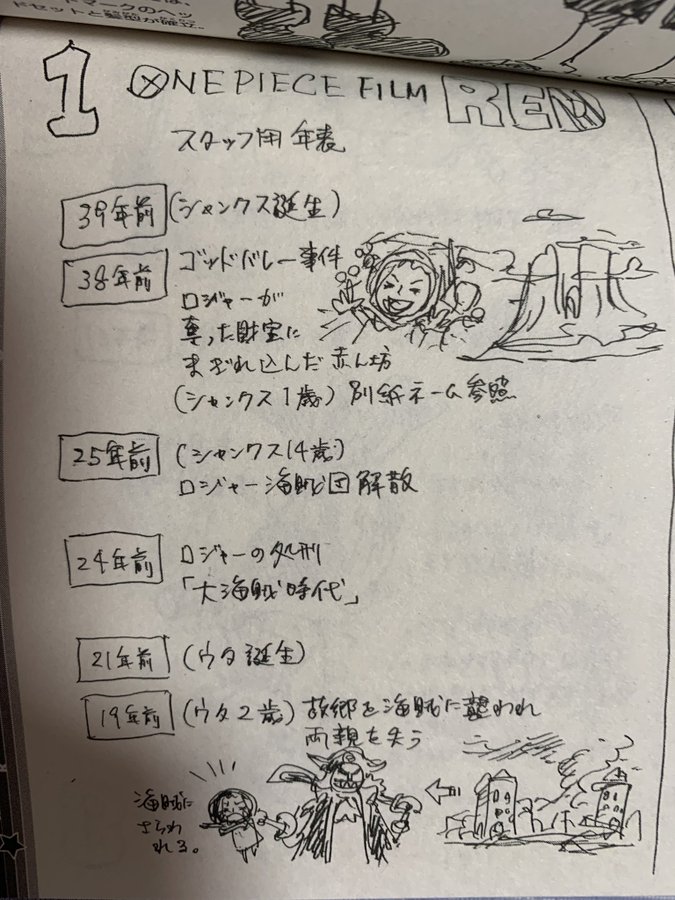 ドマークのヘッ
ドセットと髪型が確立。
1 ONE PIECE FILM RED
スタッフ用 年表
39年前 (シャンクス誕生)
38年前 ゴッドバレー事件
ロジャーが
奪った財宝に
まぎれ込んだ赤ん坊
(シャンクス1歳) 別紙ネーム参照
25年前 (シャンクス14歳)
ロジャー海賊団解散
24年前 ロジャーの処刑
「大海賊時代」
21年前 (ウタ誕生)
19年前 (ウタ2歳) 故郷を海賊に襲われ
両親を失う
海賊に
さらわ
れる。